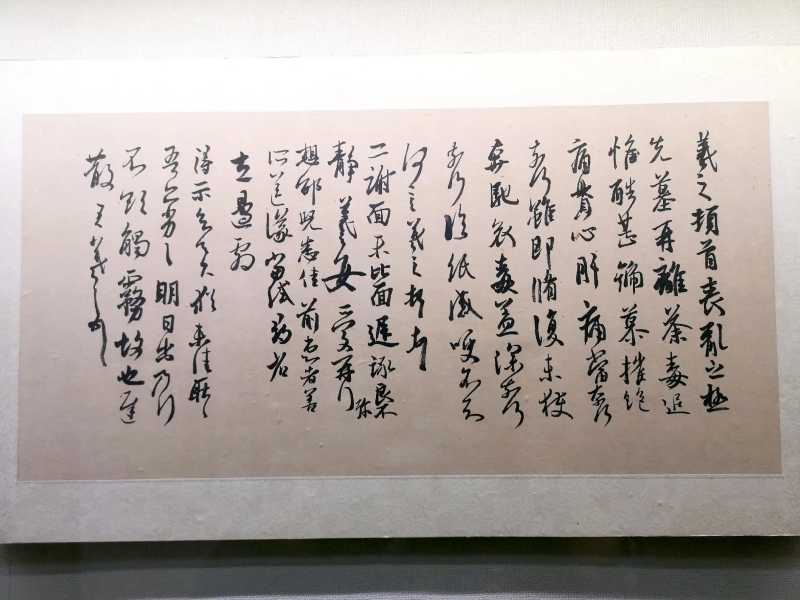 羲之頓首喪亂之極
先墓再離荼毒追
惟酷甚號慕摧絕
痛貫心肝痛當奈何
奈何雖即脩復未獲
奔馳哀毒益深奈何
奈何臨紙感哽不知
何言羲之頓首
二謝面未比面遲詠良不
靜羲之女愛再拜
想邰兒悉佳前患者善
所送議當試尋省
左邊劇
得示知足下猶未佳耿耿
吾亦劣劣明日出乃行
不欲觸霧故也遲
散王羲之頓首